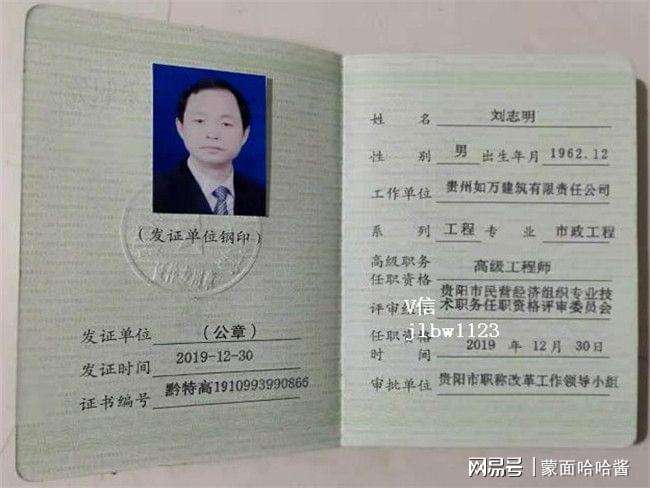 (发证单位钢印)
发证单位 (公章)
发证时间 2019-12-30
证书编号 黔特高1910993990866
姓 名 刘志明
性 别 男 出生年月 1962.12
工作单位 贵州如万建筑有限责任公司
系 列 工程 专 业 市政工程
高级职务
任职资格 高级工程师
贵阳市民营经济组织专业技
评审组织 术职务任职资格评审委员会
V信
jlbw1123
任职资格
时 间 2019 年 12 月 30日
审批单位 贵阳市职称改革工作领导小组
网易号 蒙面哈哈酱